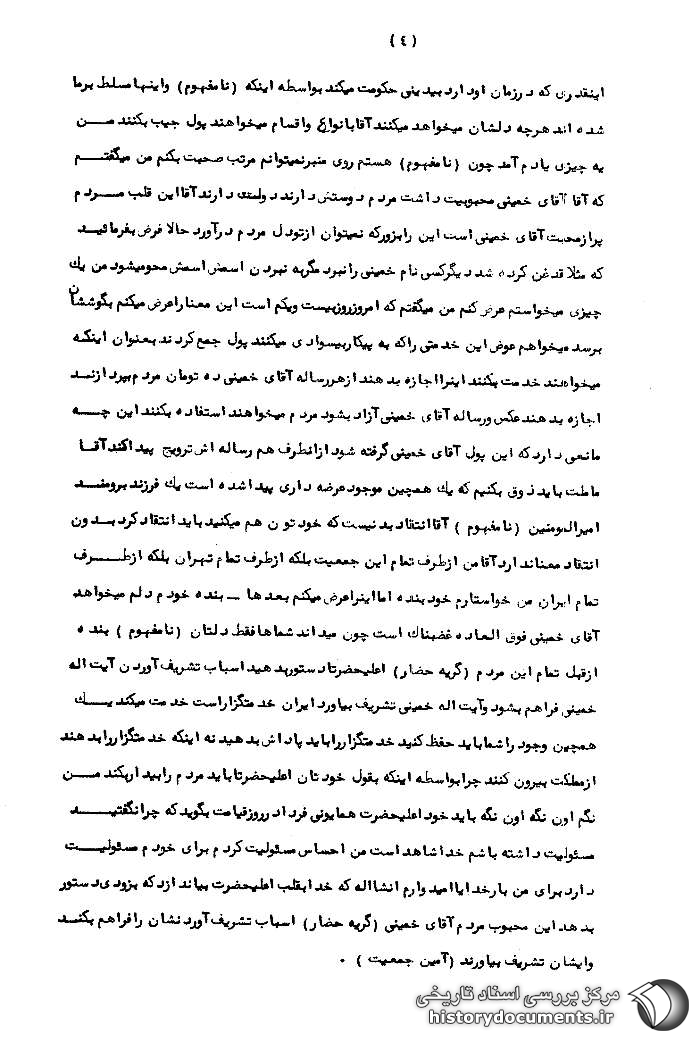 (٤)
اینقدری که در زمان او دارد بیدینی حکومت میکند بواسطه اینکه (نامفهوم) واینها مسلط برما
شده اند هرچه دلشان میخواهد میکنند آقا بانواع واقسام میخواهند پول جیب بکنند مـــن
یه چیزی یادم آمد چون (نامفهوم) هستم روی منبر نمیتوانم مرتب صحبت بکنم من میگفتـــم
که آقا آقای خمینی محبوبیت داشت مردم دوستش دارند دارند آقا این قلب مـــردم
پراز محبت آقای خمینی است این را بزور که نمیتوان از تو دل مردم درآورد حالا فرض بفرمائیـــد
که مثلا قدغن کرده شد دیگر کسی نام خمینی را نبرد مگر به نبردن اسمش اسمش محو میشود من یك
چیزی میخواستم عرض کنم من میگفتم که امروز روز بیست ویکم است این معنا را عرض میکنم بگوششان
برسد میخواهم عوض این خدمتی را که به پیکار بیسوادی میکنند پول جمع کردند بعنوان اینکـه
میخواهند خدمت بکنند اینرا اجازه بدهند از هر رساله آقای خمینی ده تومان مردم بپردازنـــد
اجازه بدهند عکس ورساله آقای خمینی آزاد بشود مردم میخواهند استفاده بکنند این چـــه
مانعی دارد که این پول آقای خمینی گرفته شود ازانطرف هم رساله اش ترویج پیدا کند آقـــا
ما ملت باید ذوق بکنیم که یك همچین موجود عرضه داری پیدا شده است یك فرزند برومنـــد
امیرالمومنین (نامفهوم) آقا انتقاد بد نیست که خود تون هم میکنید باید انتقاد کرد بـــدون
انتقاد معنا ندارد آقا من از طرف تمام این جمعیت بلکه از طرف تمام تهران بلکه از طـــرف
تمام ایران من خواستارم خود بنده اما اینرا عرض میکنم بعدها ــ بنده خودم دلم میخواهد
آقای خمینی فوق العاده غضبناك است چون میداند شماها فقط دلتان (نامفهوم) بنده
از قبل تمام این مردم (گریه حضار) اعلیحضرتا دستور بدهید اسباب تشریف آوردن آیت اله
خمینی فراهم بشود وآیت اله خمینی تشریف بیاورد ایران خدمتگزار است خدمت میکند یـــك
همچین وجود را شما باید حفظ کنید خدمتگزار را باید پاداش بدهید نه اینکه خدمتگزار را بدهند
از مملکت بیرون کنند چرا بواسطه اینکه بقول خودتان اعلیحضرتا باید مردم را بیدار بکند مـــن
نگم اون نگه اون نگه باید خود اعلیحضرت همایونی فردا در روز قیامت بگوید که چرا نگفتیـــد
مسئولیت داشته باشم خدا شاهد است من احساس مسئولیت کردم برای خودم مسئولیـــت
دارد برای من بار خدایا امیدوارم انشااله که خدا بقلب اعلیحضرت بیاندازد که بزودی دستور
بدهد این محبوب مردم آقای خمینی (گریه حضار) اسباب تشریف آوردنشان را فراهم بکنـــد
وایشان تشریف بیاورند (آمین جمعیت) ۰
مرکز بررسی اسناد تاریخی
historydocuments.ir